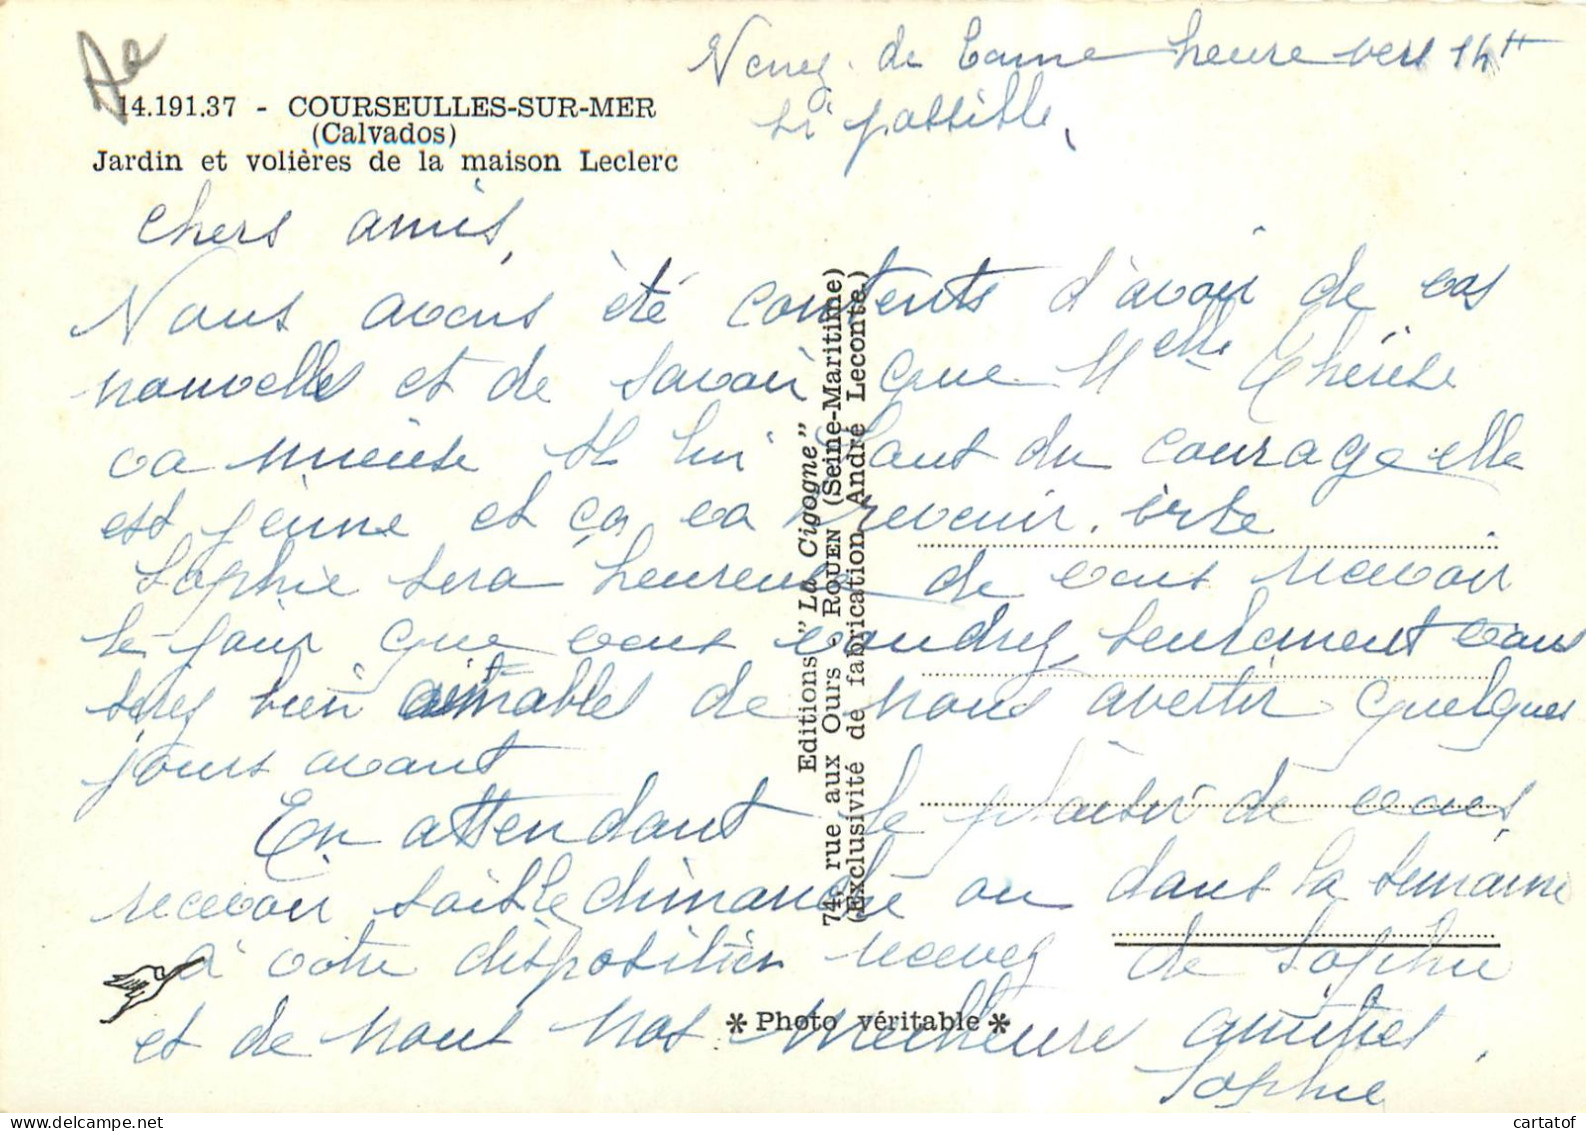 Venez de bonne heure vers 14H
si possible,
14.191.37 - COURSEULLES-SUR-MER
(Calvados)
Jardin et volières de la maison Leclerc
chers amis,
Nous avons été contents d'avoir de vos
nouvelles et de savoir que Melle Thérèse
va mieuse Il lui faut du courage elle
est jeune et ça va revenir.
Sophie sera heureuse de vous recevoir
le jour que vous voudrez seulement vous
serez bien aimables de nous avertir quelques
jours avant
En attendant le plaisir de vous
recevoir soit le dimanche ou dans la semaine
à votre disposition recevez de Sophie
et de nous nos meilleures amitiés,
Sophie
Editions "La Cigogne"
74, rue aux Ours - ROUEN (Seine-Maritime)
(Exclusivité de fabrication André Leconte)
* Photo véritable *
cartatof